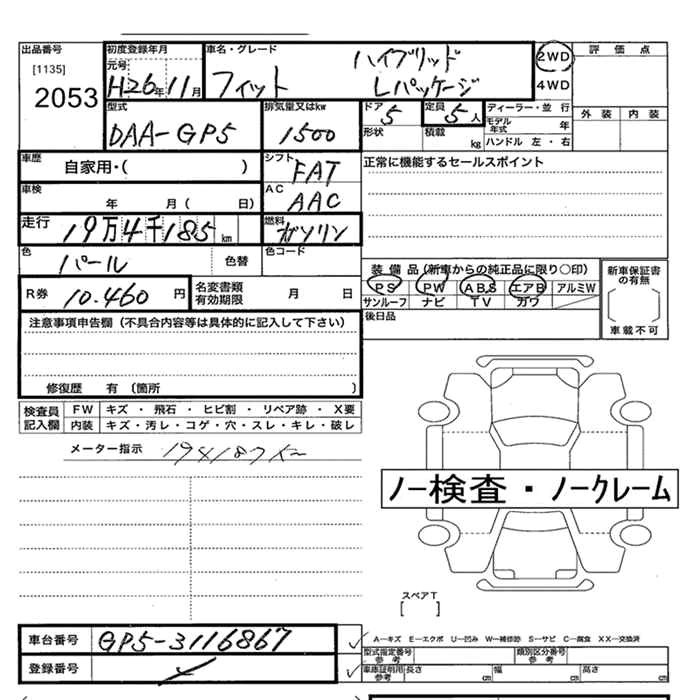 出品番号 初度登録年月 車名・グレード ハイブリッド 2WD 評価点
[1135] 元号
2053 H26年11月 フィット Lパッケージ 4WD
型式 排気量又はkw ドア 5 定員 5人 ディーラー・並行 外装 内装
DAA-GP5 1500 形状 積載 kg モデル年式 年
ハンドル 左・右
車歴 自家用・( ) シフト FAT 正常に機能するセールスポイント
車検 年 月( 日) AC AAC
走行 19万4千185km 燃料 ガソリン
色 パール 色替 色コード
装備品(新車からの純正品に限り○印) 新車保証書の有無
R券 10.460円 名変書類有効期限 月 日 PS PW ABS エアB アルミW
サンルーフ ナビ TV カワ
[ ]
車載不可
注意事項申告欄(不具合内容等は具体的に記入して下さい) 後日品
修復歴 有(箇所 )
検査員記入欄 FW キズ・飛石・ヒビ割・リペア跡・X要
内装 キズ・汚レ・コゲ・穴・スレ・キレ・破レ
メーター指示 194187K
ノー検査・ノークレーム
スペアT
[ ]
車台番号 GP5-3116867 A―キズ E―エクボ U―凹み W―補修跡 S―サビ C―腐食 XX―交換済
型式指定番号参考 類別区分番号参考
登録番号 車庫証明用参考 長さ cm 幅 cm 高さ cm